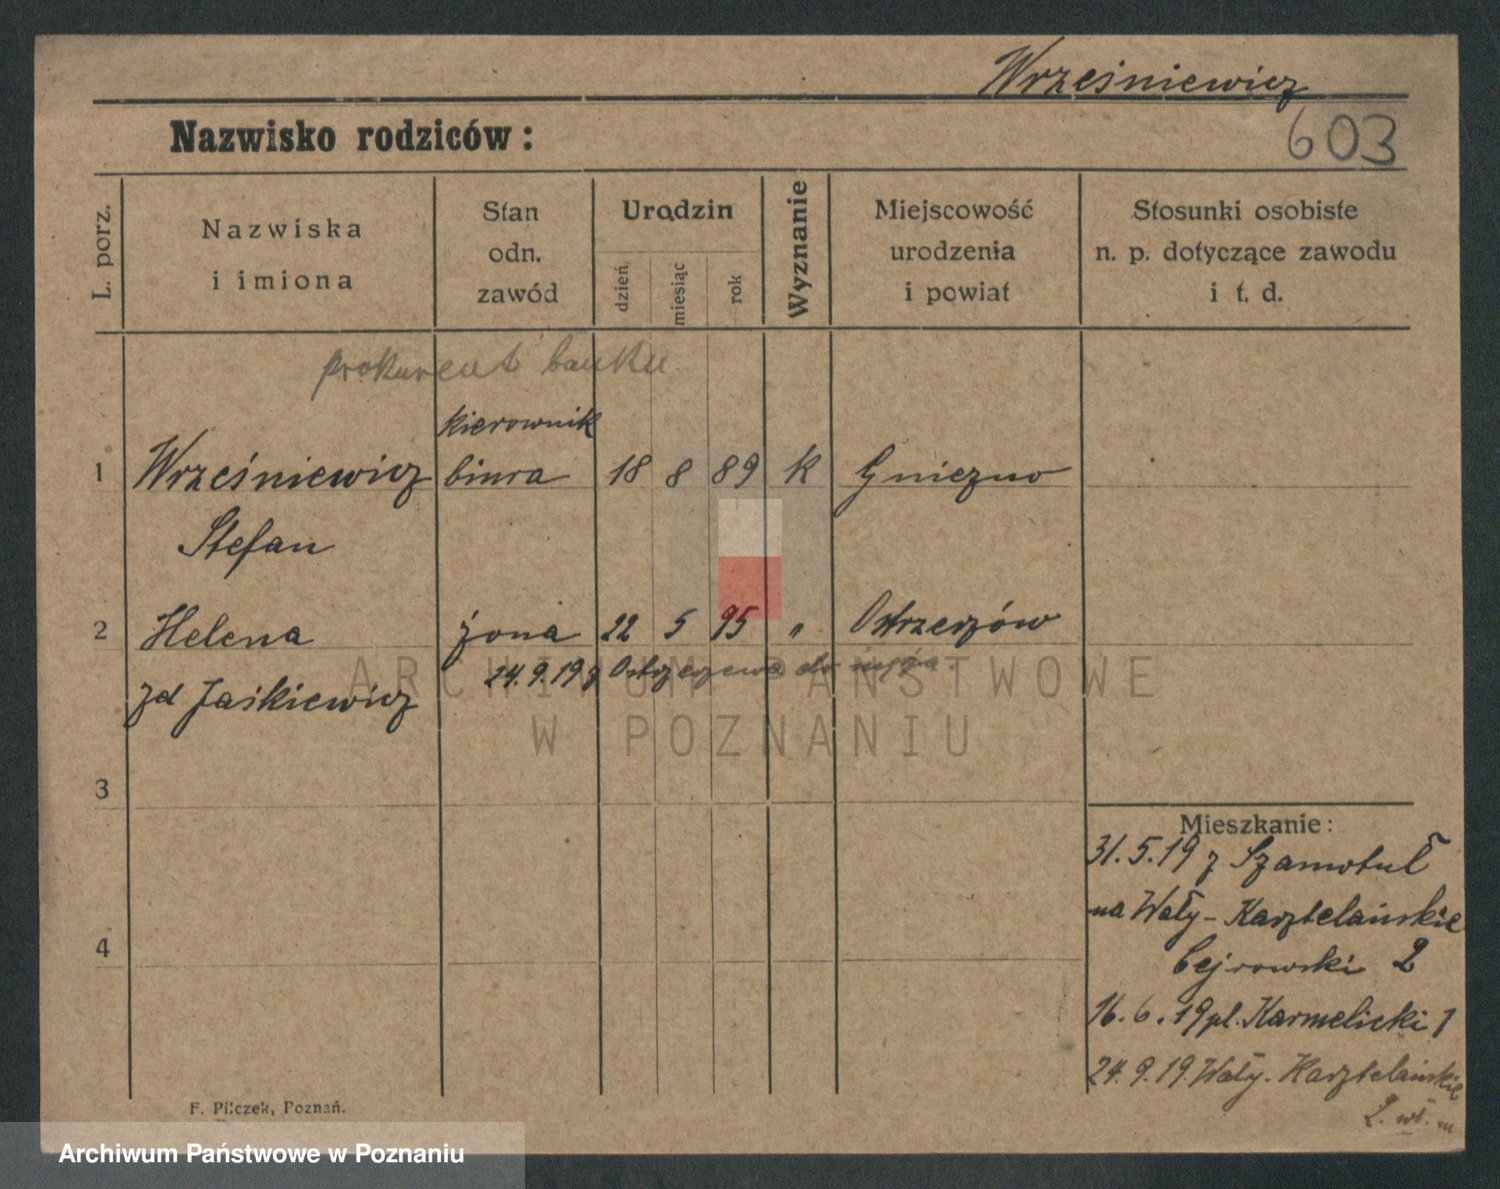 Wrześniewicz
Nazwisko rodziców:
603
L. porz.
Nazwiska
i imiona
Stan
odn.
zawód
Urodzin
dzień
miesiąc
rok
Wyznanie
Miejscowość
urodzenia
i powiat
Stosunki osobiste
n. p. dotyczące zawodu
i t. d.
prokurent banku
kierownik
1 Wrześniewicz biura 18 8 89 K Gniezno
Stefan
2 Helena żona 22 5 95 " Ostrzeszów
24.9.19 z Ostrzeszewa do męża.
zd Jaśkiewicz
ARCHIWUM PAŃSTWOWE
W POZNANIU
3
4
Mieszkanie:
31.5.19 z Szamotuł
na Wały-Kasztelańskie
Cejrowski 2
16.6.19 pl. Karmelicki 1
24.9.19. Wały-Kasztelańskie
2. wł. m
F. Pilczek, Poznań.
Archiwum Państwowe w Poznaniu